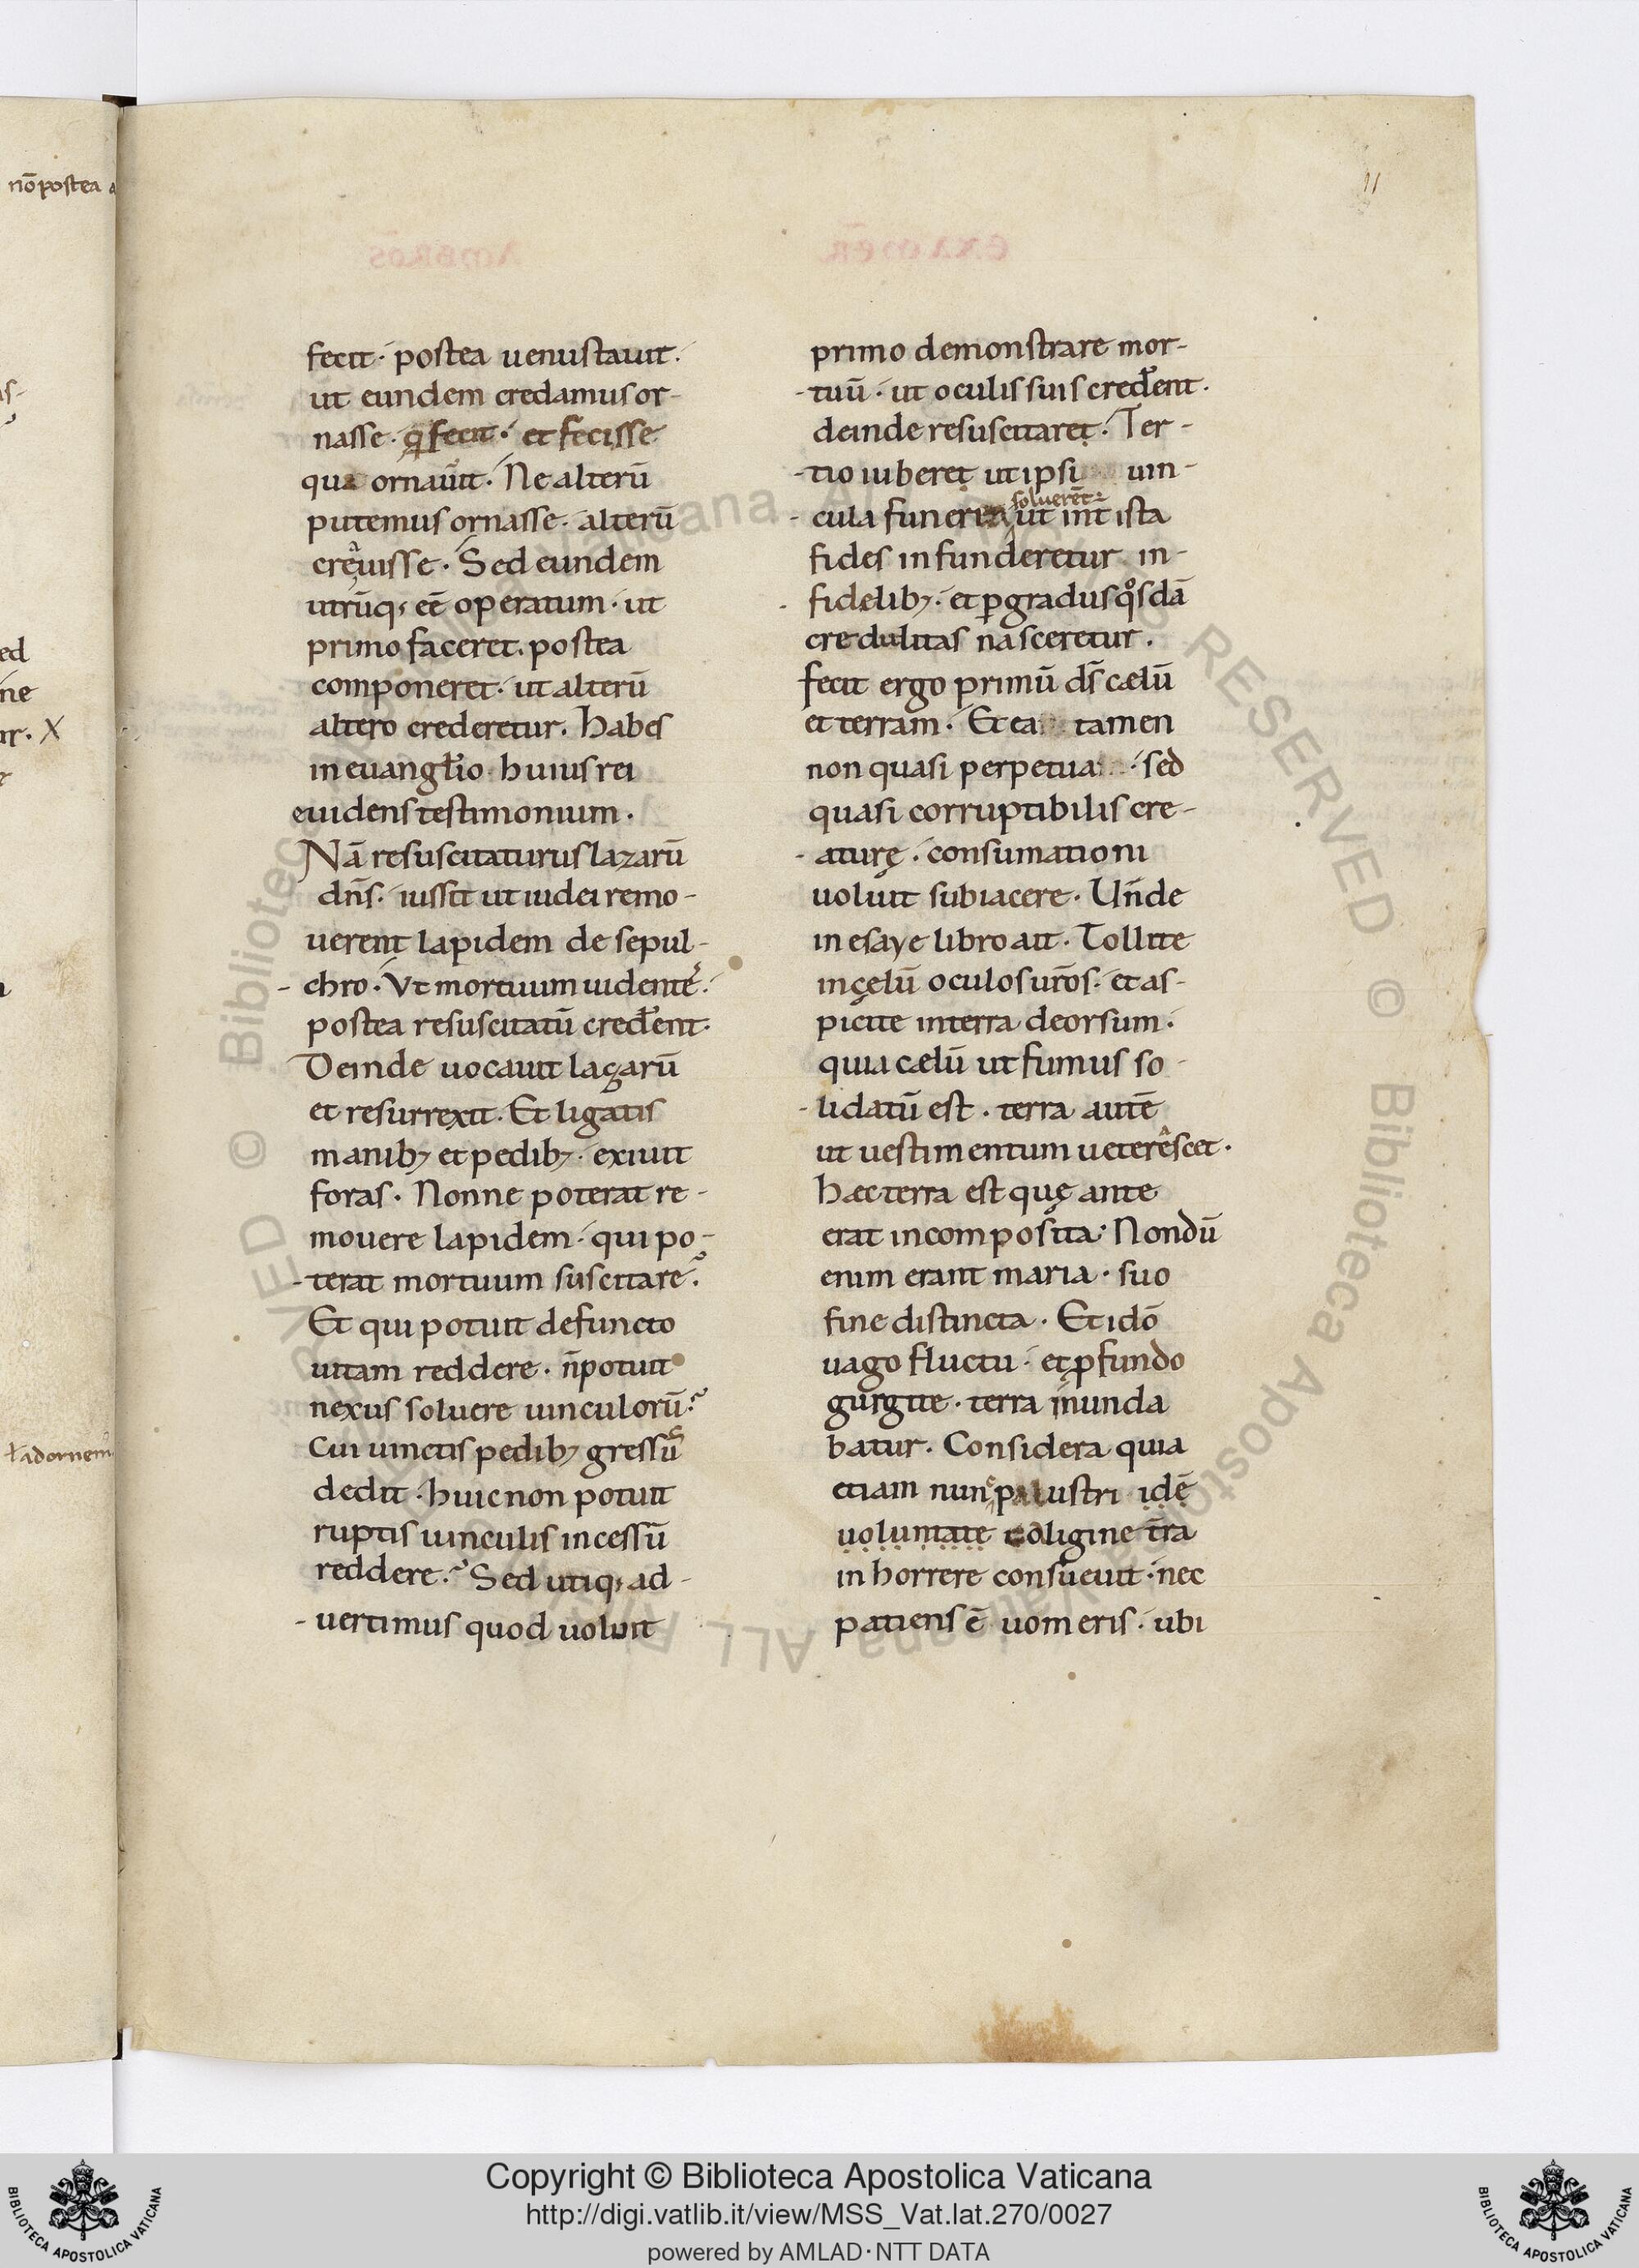 nō postea
11
fecit · postea uenustauit ·
ut eundem credamus or-
nasse · q̄ fecit · et fecisse
qua ornauit · Ne alterū
putemus ornasse · alterū
creauisse · Sed eundem
utrūq; eē operatum · ut
primo faceret · postea
componeret · ut alterū
altero crederetur · habes
in euangłio huius rei
euidens testimonium ·
Nā resuscitaturus lazarū
dn̄s · iussit ut iudei remo-
uerent lapidem de sepul-
chro · Vt mortuum uidentes ·
postea resuscitatū cred̄ent ·
Deinde uocauit laçarū
et resurrexit · Et ligatis
manib; et pedib; · exiuit
foras · Nonne poterat re-
mouere lapidem · qui po-
terat mortuum suscitare?
Et qui potuit defuncto
uitam reddere · n̄ potuit
nexus soluere uinculorū?
Cui uinctis pedib; gressū
dedit · huic non potuit
ruptis uinculis incessū
reddere? Sed utiq; ad-
uertimus quod uoluit
primo demonstrare mor-
tuū · ut oculis suis cred̄ent ·
deinde resuscitaret · Ter-
tio iuberet ut ipsi uin-
soluerēt
cula funeris ut int̄ ista
fides infunderetur in-
fidelib; · et p̄ gradus qͦsdā
credulitas nasceretur ·
fecit ergo primū ds̄ cælū
et terram · Et ea tamen
non quasi perpetua · sed
quasi corruptibilis cre-
aturę · consumationi
uoluit subiacere · Un̄de
in esaye libro ait · Tollite
in çelū oculos ur̄os · et as-
picite in terra deorsum ·
quia cælū ut fumus so-
lidatū est · terra autē
ut uestimentum ueterescet ·
hæc terra est quę ante
erat incomposita · Nondū
enim erant maria · suo
fine distincta · Et idō
uago fluctu · et p̄fundo
gurgite · terra inunda
batur · Considera quia
etiam nunc palustri idē
uoluntate coligine tr̄a
inhorrere consueuit · nec
patiens ē uomeris · ubi
Copyright © Biblioteca Apostolica Vaticana
http://digi.vatlib.it/view/MSS_Vat.lat.270/0027
powered by AMLAD·NTT DATA
BIBLIOTECA APOSTOLICA VATICANA
BIBLIOTECA APOSTOLICA VATICANA